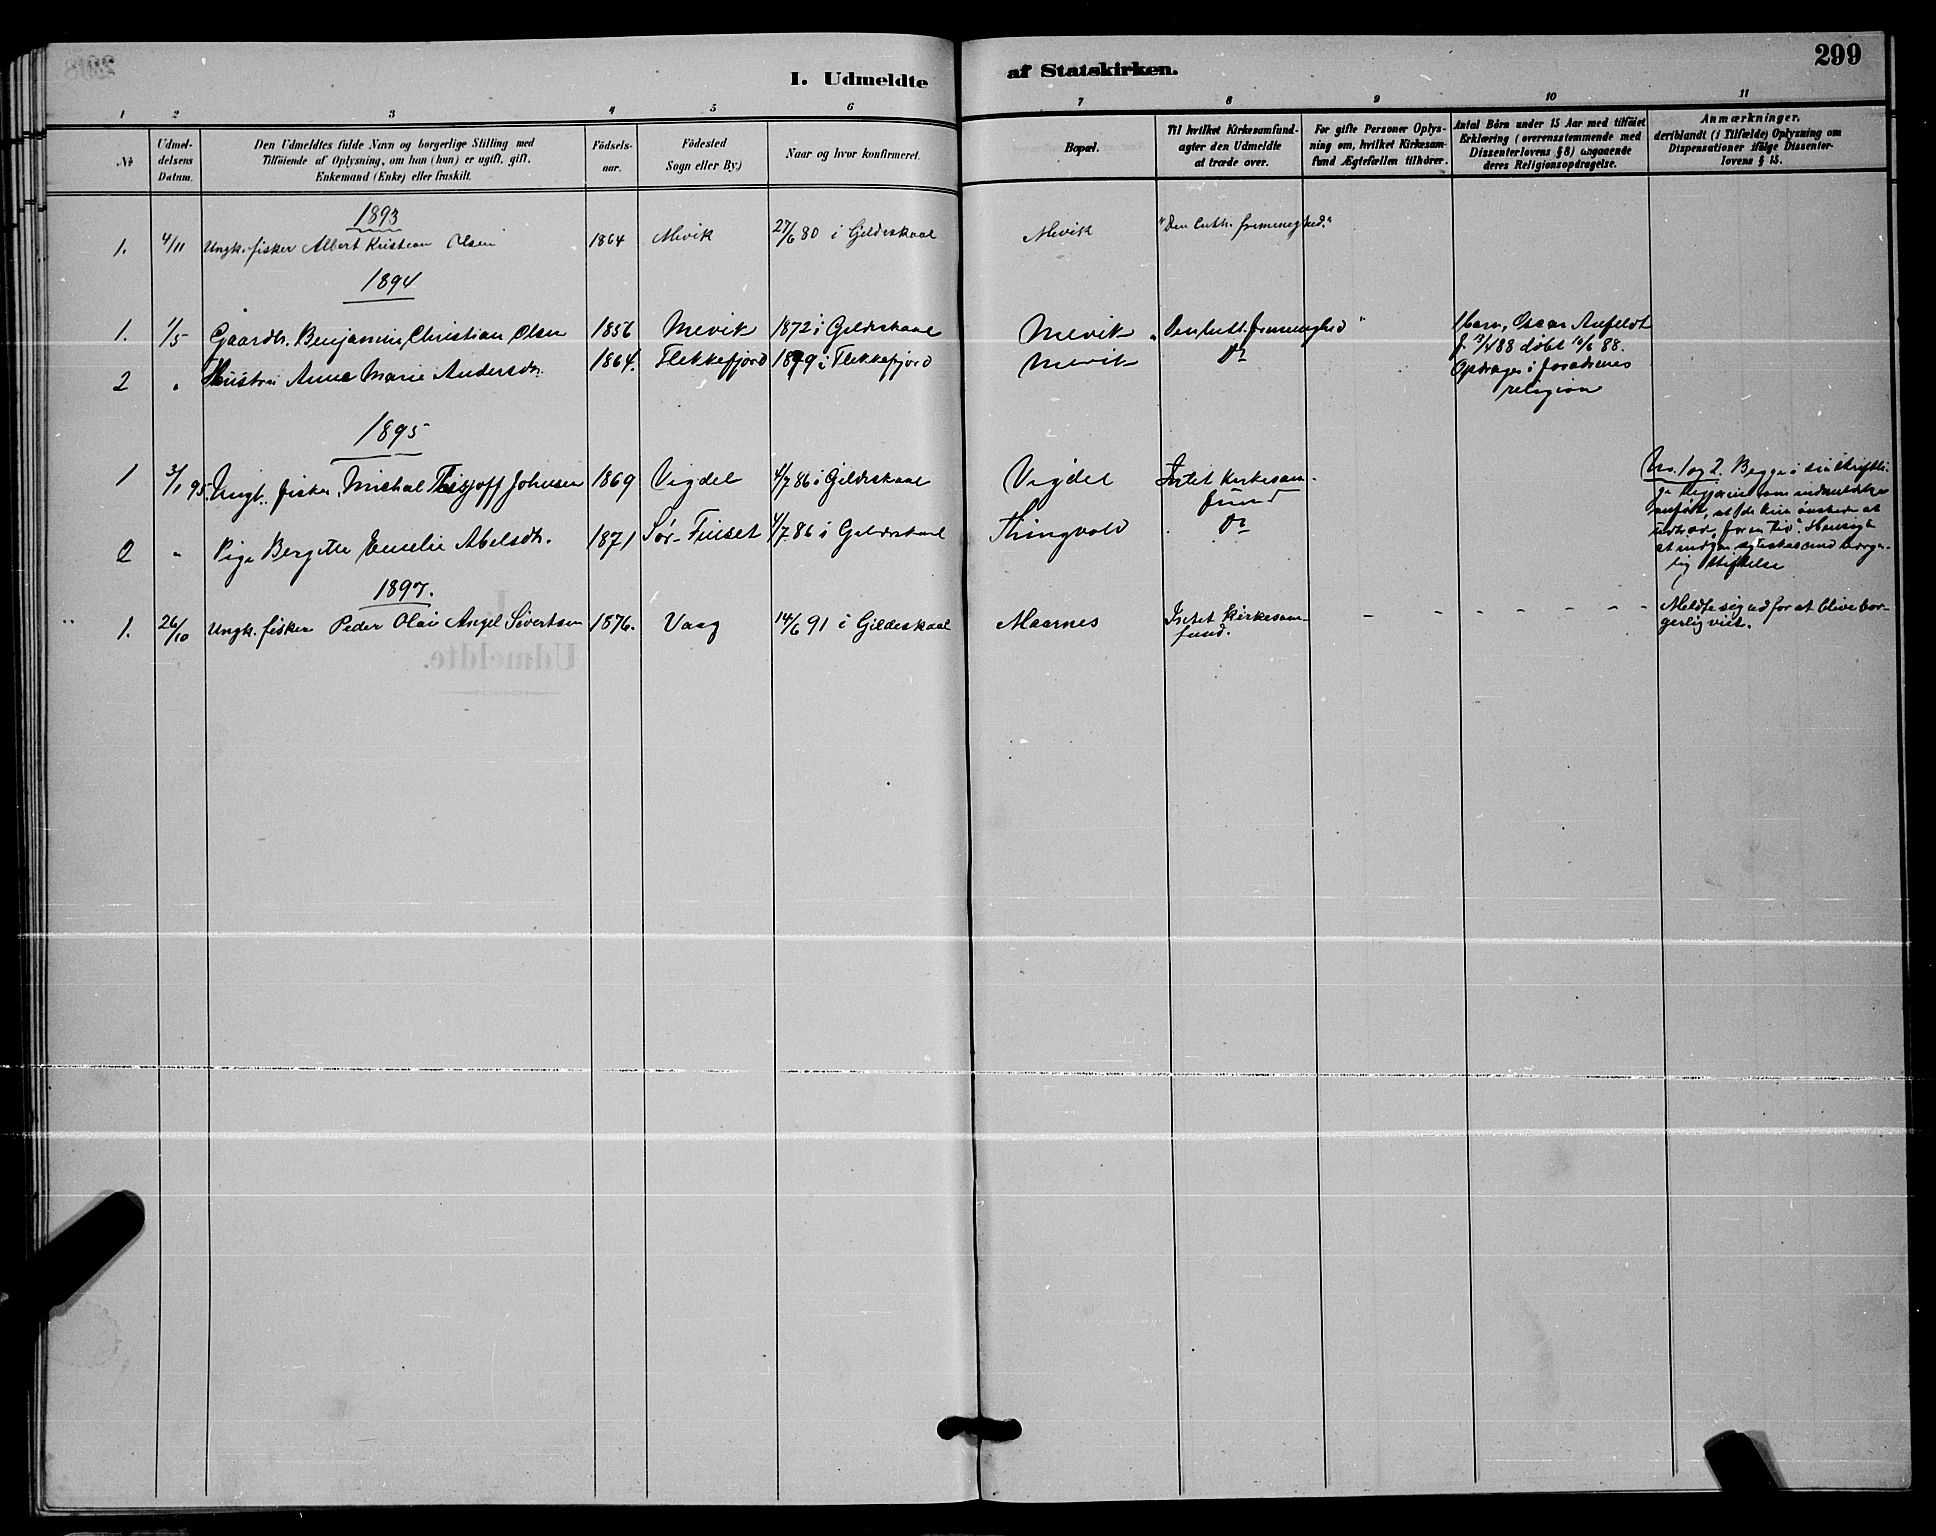 I. Udmeldte af Statskirken.
299
1 2 3 4 5 6 7 8 9 10 11
Nr
Udmel-
delsens
Datum.
Den Udmeldtes fulde Navn og borgerlige Stilling med
Tilføiende af Oplysning, om han (hun) er ugift, gift,
Enkemand (Enke) eller fraskilt.
Fødsels-
aar.
Fødested
Sogn eller By.)
Naar og hvor konfirmeret.
Bopæl.
Til hvilket Kirkesamfund-
agter den Udmeldte
at træde over.
For gifte Personer Oplys-
ning om, hvilket Kirkesam-
fund Ægtefællen tilhører.
Antal Børn under 15 Aar med tilføiet
Erklæring (overensstemmende med
Dissenterlovens §8) angaaende
deres Religionsopdragelse.
Anmærkninger,
deriblandt (i Tilfælde) Oplysning om
Dispensationer ifølge Dissenter-
lovens § 15.
1893
1. 4/11 Ungk. fisker Albert Kristian Olsen 1864 Mevik 27/6 80 i Gildeskaal Mevik "Den luth. frimenighed."
1894
1. 1/5 Gaardbr. Benjamin Christian Olsen 1856 Mevik 1872 i Gildeskaal Mevik "Den luth. frimenighed"
1 barn, Oscar Anfeldt
f. 13/4 88 døbt 10/6 88.
Opdrages i forældrenes
religion
2 " Hustru Anne Marie Andersdr. 1864. Flekkefjord 1879 i Flekkefjord Mevik Do
1895
1 3/1 95. Ungk. fisker Michal Johnsen 1869 Vigdel 4/7 86 i Gildeskaal Vigdel Intet Kirkesam-
fund
2 " Pige Bergitte Emelie Abelsdr. 1871 Sør-Finset 4/7 86 i Gildeskaal Thingvold Do
No. 1 og 2. Begge i sin skriftli-
anført, at de kun ønskede at
"for en Tid". Hensigt
at indgaa borger-
lig Stiftelse
1897.
1. 26/10 Ungk. fisker Peder Olai Angel Sivertsen 1876. Vaag 14/6 91 i Gildeskaal Maarnes Intet Kirkesam-
fund. – – – – – – –
Meldte sig ud for at blive bor-
gerlig viet.